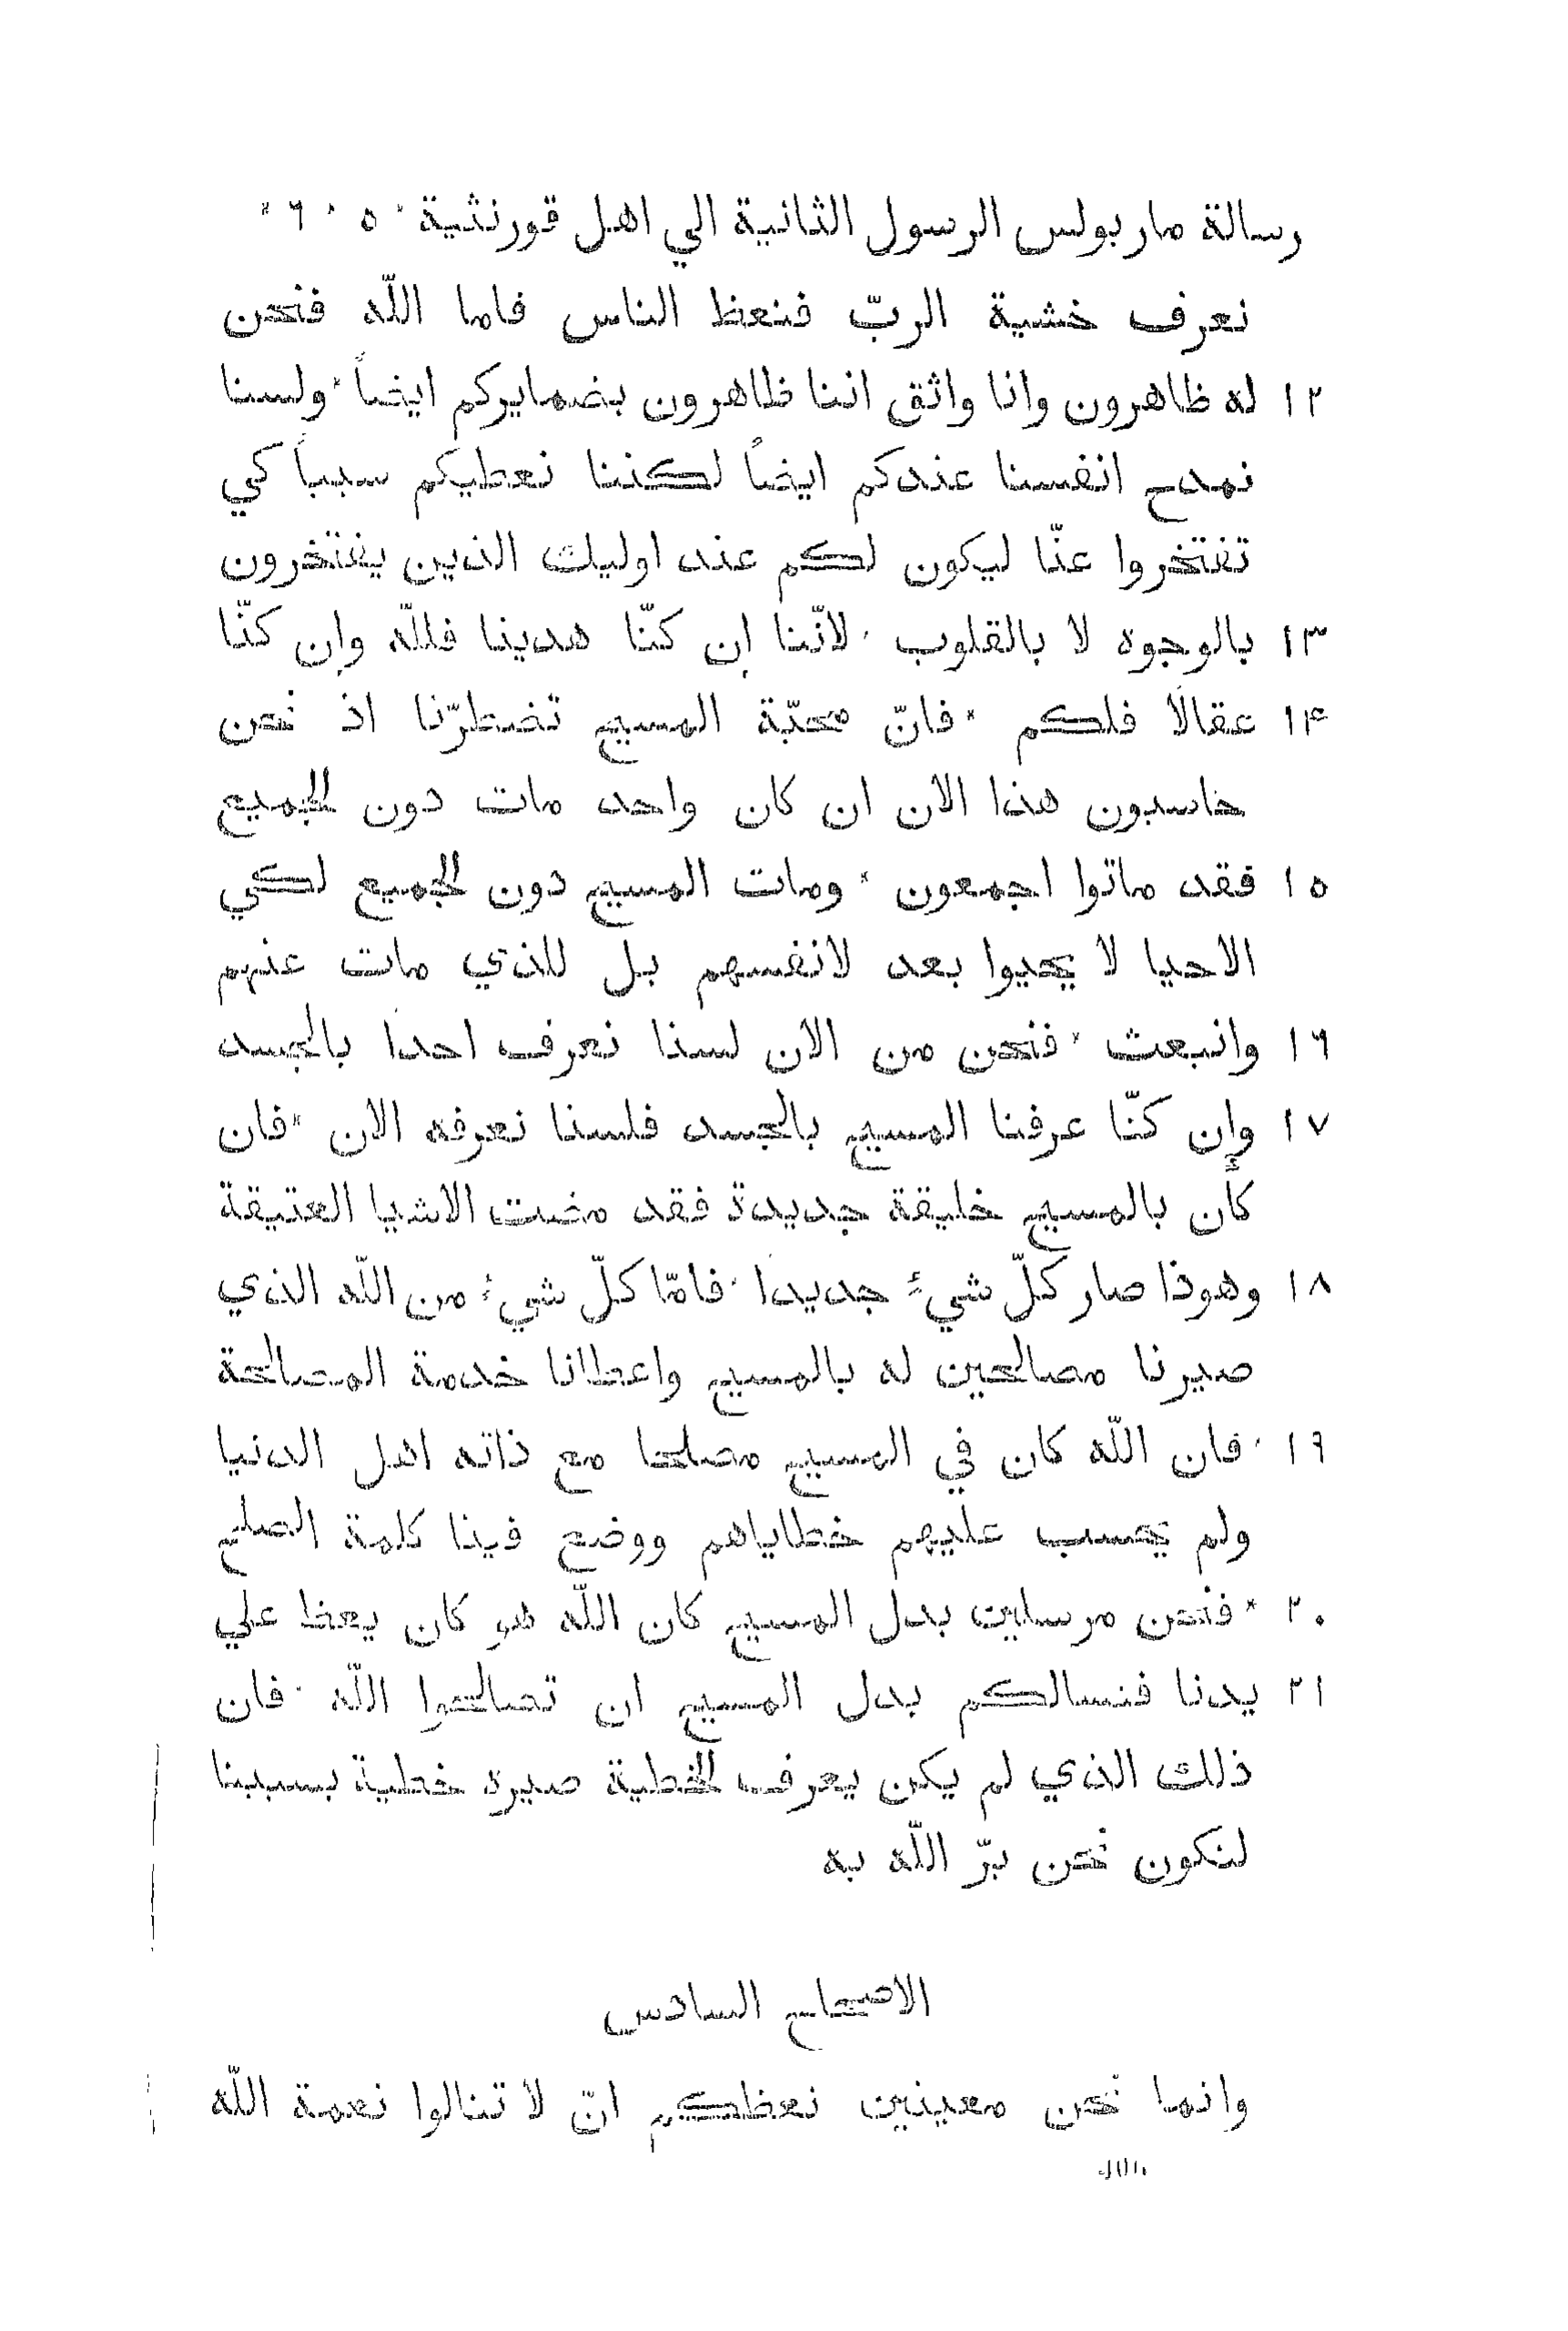 رسالة مار بولس الرسول الثانية الي اهل قورنثية * ٥ * ٦ *
نعرف خشية الربّ فنعظ الناس فاما اللّه فنحن
١٢ له ظاهرون وانا واثق اننا ظاهرون بضمايركم ايضاً * ولسنا
نمدح انفسنا عندكم ايضاً لكننا نعطيكم سبباً كي
تفتخروا عنّا ليكون لكم عند اوليك الذين يفتخرون
١٣ بالوجوه لا بالقلوب * لانّنا إن كنّا هدينا فللّه وإن كنّا
١۴ عقالًا فلكم * فانّ محبّة المسيح تضطرّنا اذ نحن
حاسبون هذا الان ان كان واحد مات دون الجميع
١٥ فقد ماتوا اجمعون * ومات المسيح دون الجميع لكي
الاحيا لا يحيوا بعد لانفسهم بل للذي مات عنهم
١٦ وانبعث * فنحن من الان لسنا نعرف احدًا بالجسد
١٧ وإن كنّا عرفنا المسيح بالجسد فلسنا نعرفه الان * فان
كان بالمسيح خليقة جديدة فقد مضت الاشيا العتيقة
١٨ وهوذا صار كلّ شيءٍ جديدًا * فامّا كلّ شيءٍ من اللّه الذي
صيرنا مصالحين له بالمسيح واعطانا خدمة المصالحة
١٩ * فان اللّه كان في المسيح مصلحا مع ذاته اهل الدنيا
ولم يحسب عليهم خطاياهم ووضع فينا كلمة الصلح
٢٠ * فنحن مرسلين بدل المسيح كان اللّه هو كان يعظ علي
٢١ يدنا فنسالكم بدل المسيح ان تصالحوا اللّه * فان
ذلك الذي لم يكن يعرف الخطية صيره خطية بسببنا
لنكون نحن برّ اللّه به
الاصحاح السادس
وانما نحن معينين نعظكم انّ لا تنالوا نعمة اللّه